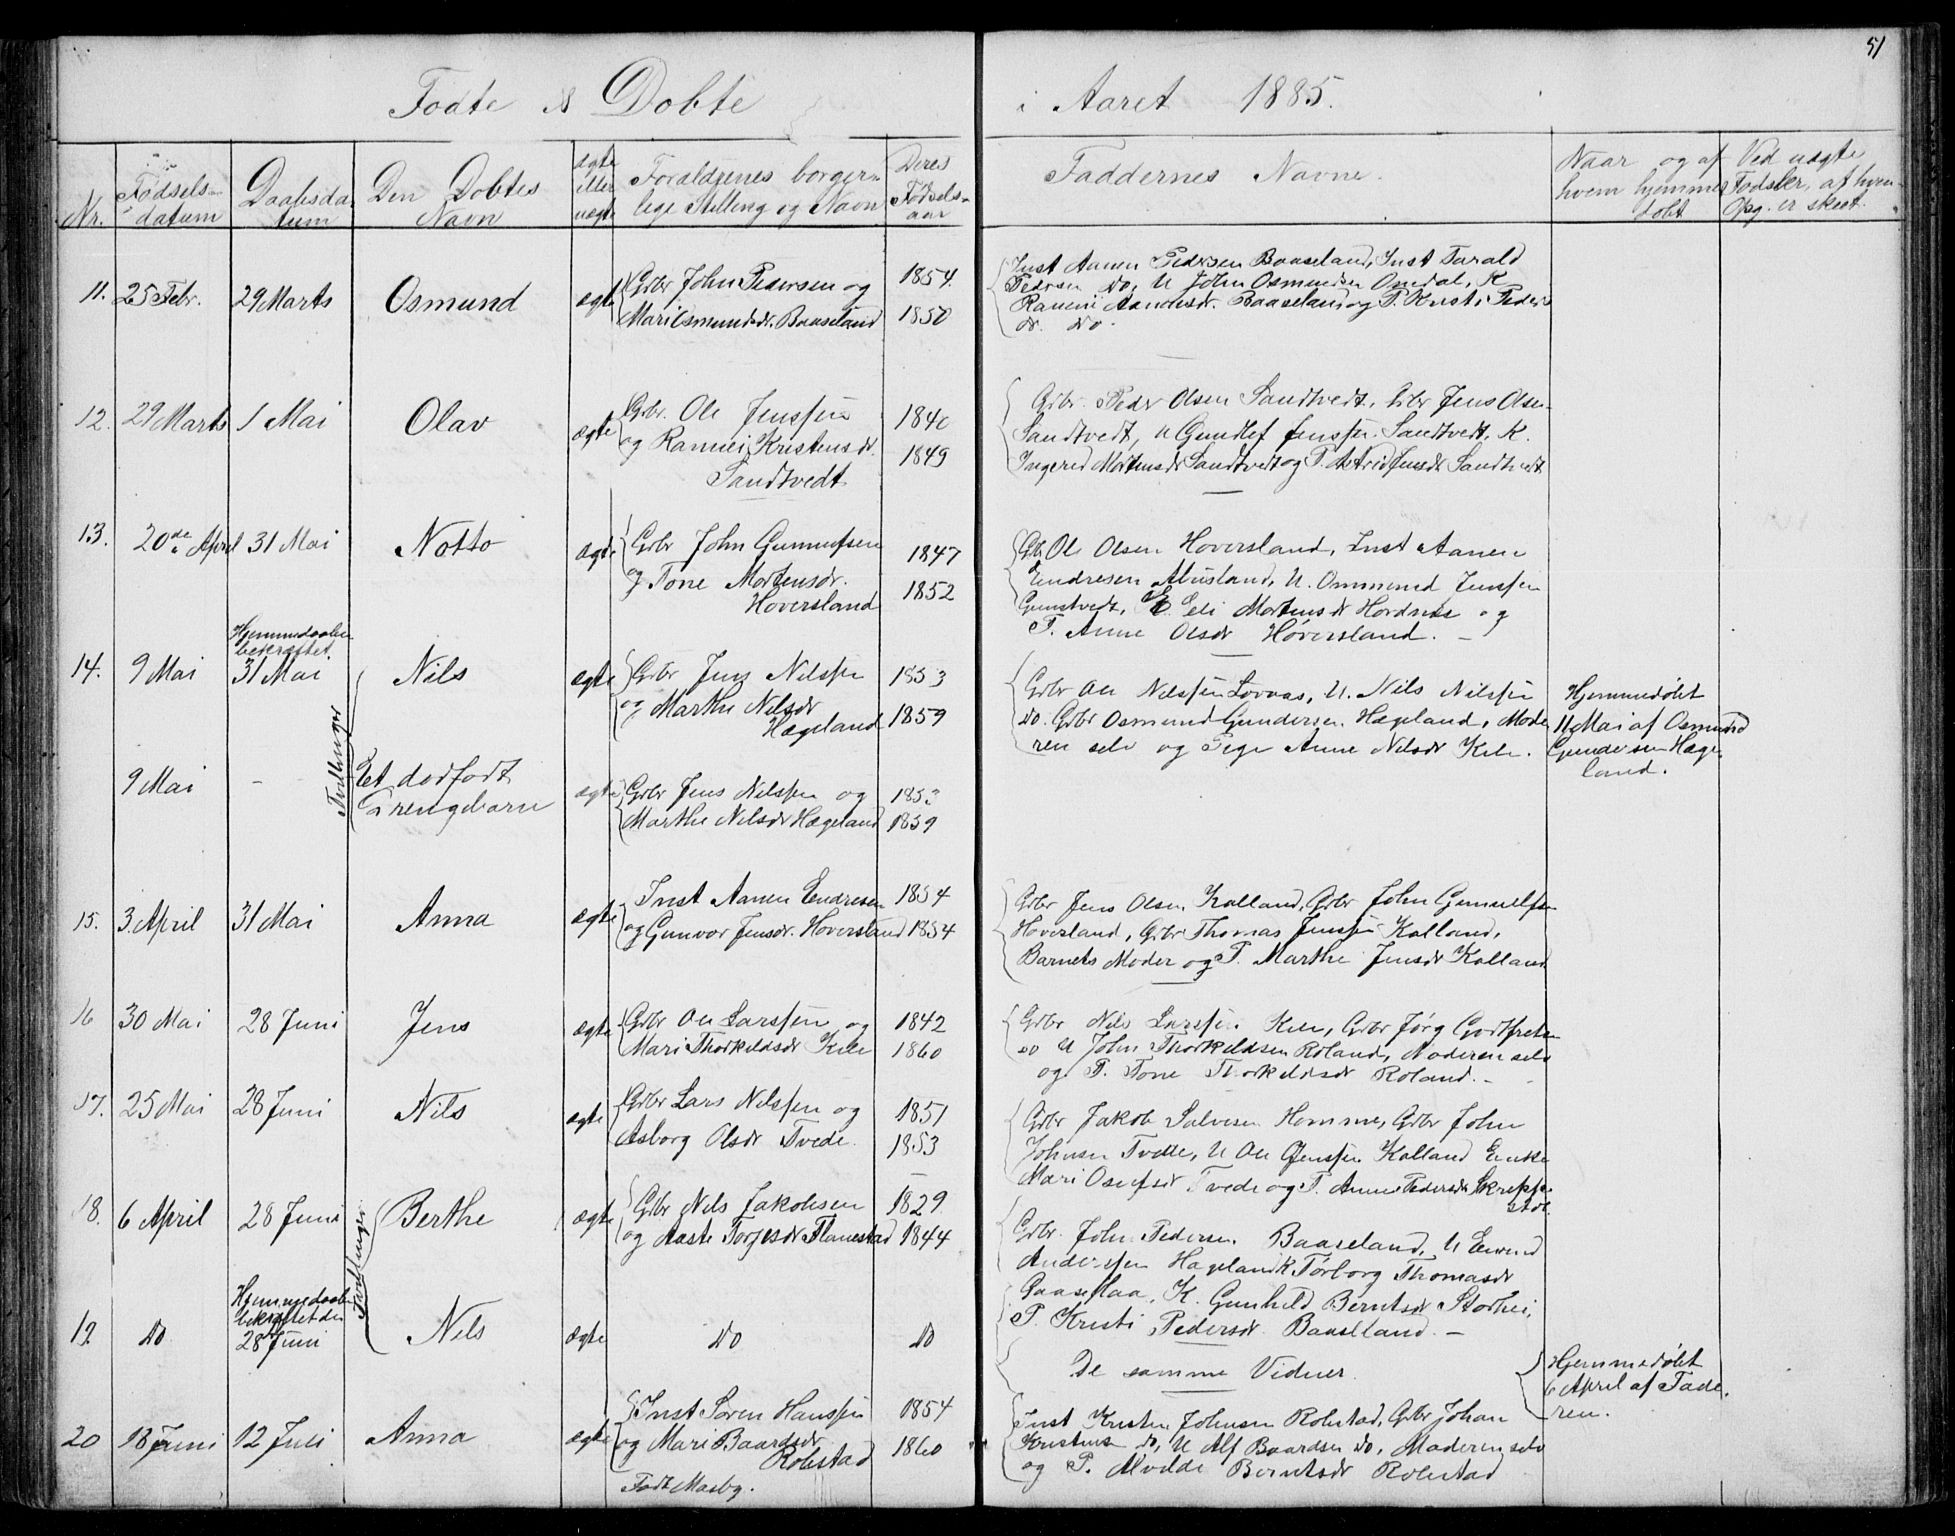 51
Fødte & Døbte
i Aaret 1885.
Nr.
Fødsels-
datum
Daabsda-
tum
Den Døbtes
Navn
ægte
eller
uægte
Forældrenes borger-
lige Stilling og Navn
Deres
Fødsels-
aar
Faddernes Navne.
Naar og af
hvem hjemme-
døbt
Ved uægte
Fødsler, af hvem
Opg. er skeet.
11. 25 Febr. 29 Marts Osmund ægte
Gdbr John Pedersen og 1854.
Mari Osmundsdr. Baaseland 1850
Inst Aanen Pedersen Baaseland, Inst Tarald
Pedersen do, U John Osmundsen Omdal, K
Ramene Aanensdr. Baaseland og P. Kristi Peders
dr. do.
12. 29 Marts 1 Mai Olav ægte
Gdbr. Ole Jenssen 1840
og Rannei Kristensdr. 1849
Sandtvedt
Gdbr. Peder Olsen Sandtvedt, Gdbr Jens Olsen
Sandtvedt, U Gundlef Jenssen Sandtvedt, K.
Ingered Mortensdr Sandtvedt og P. Astrid Jensdr Sandtvedt
13. 20de April 31 Mai Notto ægte
Gdbr John Gunnufsen 1847
og Tone Mortensdr. 1852
Hoversland
Gdb Ole Olsen Hoversland, Inst Aanen
Endresen Abusland, U. Ommund Jenssen
Gunstvedt, K. Eli Mortensdr Hordnes og
P. Anne Olsdr Høversland. –
14. 9 Mai
Hjemmedaaben
bekræftet
31 Mai
Nils ægte
Tvillinger
Gdbr Jens Nilssen 1853
og Marthe Nilsdr 1859
Hægeland
Gdbr Ole Nilssen Lovaas, U. Nils Nilssen
do. Gdbr Osmund Gundersen Hægeland, Mode
ren selv og Pige Anne Nilsdr Kile.
Hjemmedøbt
11 Mai af Osmund
Gundersen Hæge-
land.
9 Mai – Et dødfødt
Drengebarn ægte
Gdbr Jens Nilssen og 1853
Marthe Nilsdr Hægeland 1859
15. 3 April 31 Mai Anna ægte
Inst Aanen Endresen 1854
og Gunvor Jensdr. Hoversland 1854
Gdbr Jens Olsen Kalland, Gdbr John Gunnufsen
Hoversland, Gdbr Thomas Jenssen Kalland,
Barnets Moder og P. Marthe Jensdr Kalland
16 30 Mai 28 Juni Jens ægte
Gdbr Ole Larssen og 1842
Mari Thorkeldsdr Kile 1860
Gdbr Nils Larssen Kile, Gdbr Jørg Godtfretsen
do U John Thorkeldsen Roland, Moderen selv
og P. Tone Thorkeldsdr Roland. –
17. 25 Mai 28 Juni Nils ægte
Gdbr Lars Nilssen og 1851
Asborg Olsdr Tvede. 1853
Gdbr Jakob Salvesen Homme, Gdbr John
Johnsen Tvede, U Ole Jenssen Kalland Enke
Mari Osufsdr Tvede og P. Anne Pedersdr Skreppe-
støl.
18. 6 April 28 Juni Berthe ægte
Tvillinger
Gdbr Nils Jakobsen 1829
og Aaste Torjusdr Flanestad 1844
Gdbr. John Pedersen Baaseland, U Eivind
Anderssen Hageland K Torborg Thomasdr
Gaaseflaa, K. Gunhild Berntsdr Storhei,
P. Kristi Pedersdr. Baaseland. –
19. do
Hjemmedaaben
bekræftet den
28 Juni
Nils ægte do do
De samme Vidner
Hjemmedøbt
6 April af Fade-
ren.
20 18 Juni 12 Juli Anna ægte
Inst Søren Hanssen 1854
og Mari Baardsdr 1860
Robstad
Født Mosby.
Inst Kristen Johnsen Robstad, Gdbr Johan
Kristens do, U Alf Baardsen do, Moderen selv
og P. Alvilde Berntsdr Robstad